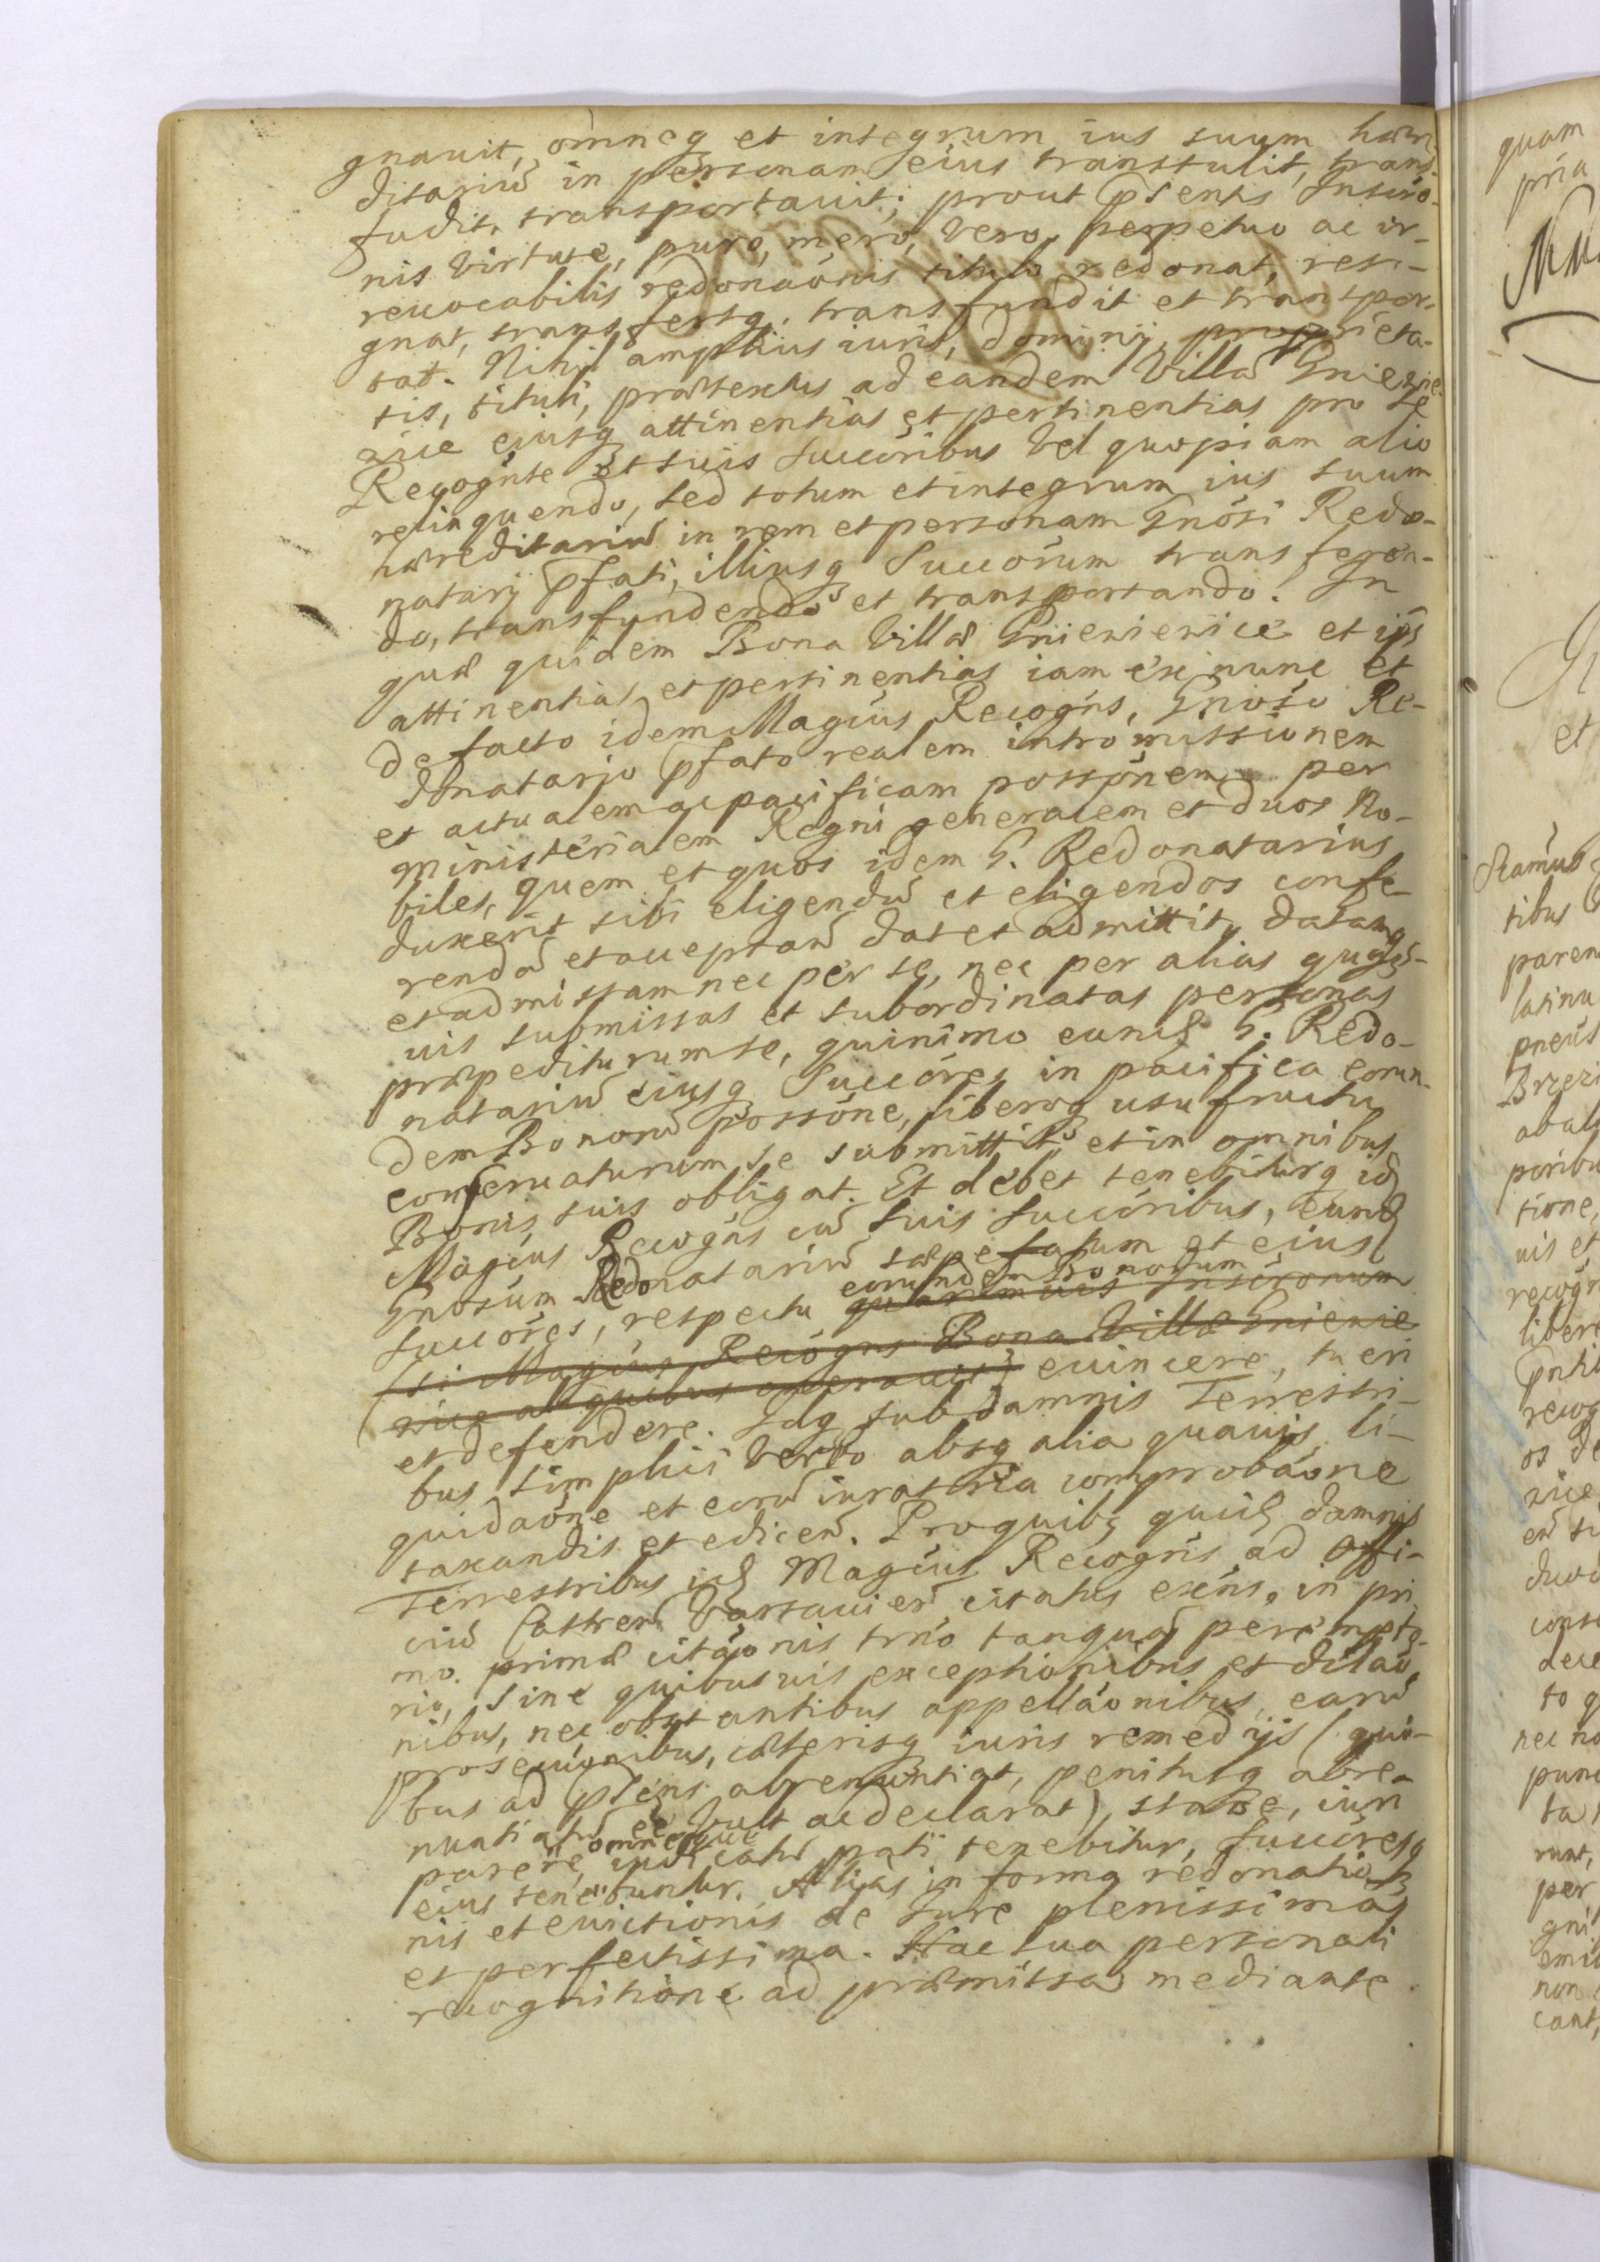 gnauit, omneq et integrum ius suum hære
ditariũ in personam eius transtulit, trans-
fudit, transportauit; prout Psentis Inscrõ-
nis virtute, puro, mero, vero, perpetuo ac ir-
reuocabilis redonaõnis titulo redonat, resi-
gnat, transfertq. transfundit et transpor-
tat. Nihil amplius iuris, dominij, proprieta-
tis, tituli, prætextus ad eandem villã Gniewie
wice eiusq attinentias et pertinentias pro se
Recognte et suis succõribus vel quopiam alio
relinquendo, sed totum et integrum ius suum
hæreditariũ in rem et personam Gnõsi Redo-
natarij Pfati, illiusq Succõrum transferen-
do, transfundendo et transportando. In
quæ quidem Bona villæ Gniewiewice et ips
attinentias et pertinentias iam ex nunc et
de facto idem Magcius Recogns, Gnõso Re-
donatario Pfato realem intromissionem
et actualem ac pacificam possõnem per
Ministerialem Regni generalem et duos No-
biles, quem et quos idem G. Redonatarius
duxerit sibi eligendũ et eligendos confe-
rendã et acceptãd dat et admittit, datamq
et admissam nec per se, nec per alias quas-
uis submissas et subordinatas personas
præpediturum se, quinimo eund G. Redo-
natariũ eiusq Succõres in pacifica eorun-
dem Bonorũ possõne, liberoq usufructu
conseruaturum se submittit, et in omnibus
Bonis suis obligat. Et debet tenebiturq id
Magcius Recogns cũ suis succõribus, eund
Gnosum Redonatariũ sæpefatum et eius
eorundem Bonorum
succõres, respectu quarumuis Inscrõnum
(si Magcius Recogns Bona villæ Gniewie
wice aliquibus onerauit) euincere, tueri
et defendere. Idq sub damnis Terrestri-
bus simplici verbo absq alia quauis li-
quidaõne et earũ iuratoria comprobaõne
taxandis et edicen. Pro quibq quid damnis
Terrestribus id Magcius Recogns ad Offi-
ciũ Castren Varsauien citatus exẽns, in pri
mo primæ citaõnis trño tanquã perempto-
rio, sine quibusuis exceptionibus et dilaõ
nibus, nec obstantibus appellaõnibus, earũ
prosecuõnibus, cæterisq iuris remedijs (qui-
bus ad Psens abrenuntiat, penitusq abre-
nuntiatũ eẽ vult ac declarat) stare, iuri
omneque
parere, iudicatũ pati tenebitur, Succõresq
eius tenebuntur. Alias in forma redonatio-
nis et euictionis de Iure plenissima
et perfectissima. Hac sua personali
recognitione ad præmissa mediante.